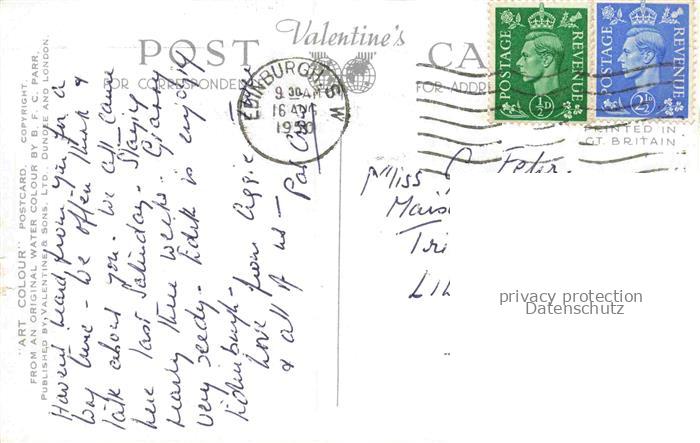 POST
Valentine's
CA
FOR CORRESPONDENCE
FOR ADDRE
"ART COLOUR" POSTCARD. COPYRIGHT.
FROM AN ORIGINAL WATER COLOUR BY B. F. C. PARR.
PUBLISHED BY VALENTINE & SONS, LTD., DUNDEE AND LONDON.
EDINBURGH S W
9 30 AM
16 AUG
1950
POSTAGE REVENUE
½D
POSTAGE REVENUE
2½D
PRINTED IN
GT. BRITAIN
Havent heard from you for a
long time - we often think &
talk about you. We all came
here last Saturday. Staying
nearly three weeks.
very seedy. Edith is enjoying
Edinburgh -
Love from Aggie
& all of us -
Miss
privacy protection
Datenschutz